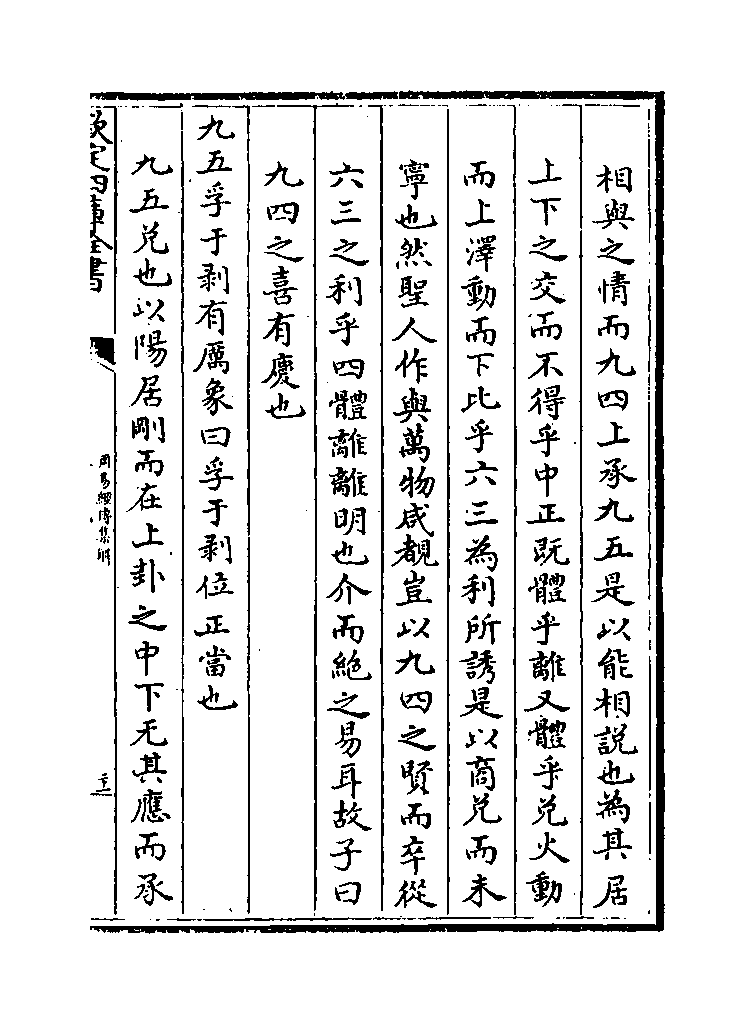 相與之情而九四上承九五是以能相說也為其居
上下之交而不得乎中正既體乎離又體乎兌火動
而上澤動而下比乎六三為利所誘是以商兌而未
寧也然聖人作與萬物咸覩豈以九四之賢而卒從
六三之利乎四體離離明也介而絶之易耳故子曰
九四之喜有慶也
九五孚于剥有厲象曰孚于剥位正當也
九五兌也以陽居剛而在上卦之中下无其應而承
欽定四庫全書
周易經傳集解